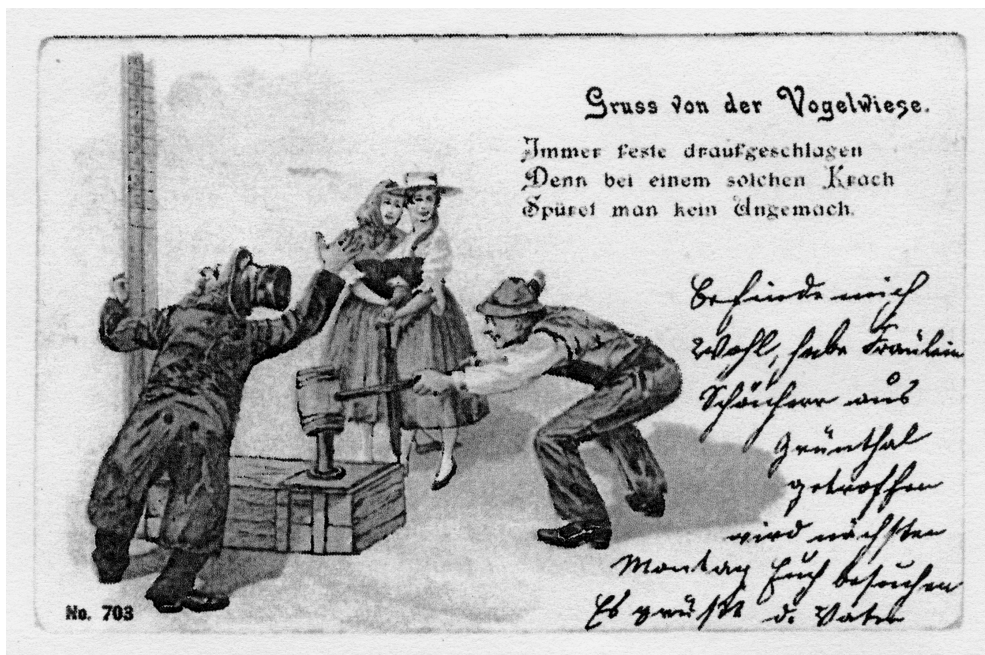 Gruss von der Vogelwiese.
Immer feste draufgeschlagen
Denn bei einem solchen Krach
Spüret man kein Ungemach.
Befinde mich
Wohl, habe Fräulein
aus
Grünthal
getroffen
wird nächsten
Montag Euch besuchen
Es grüßt d. Vater
No. 703